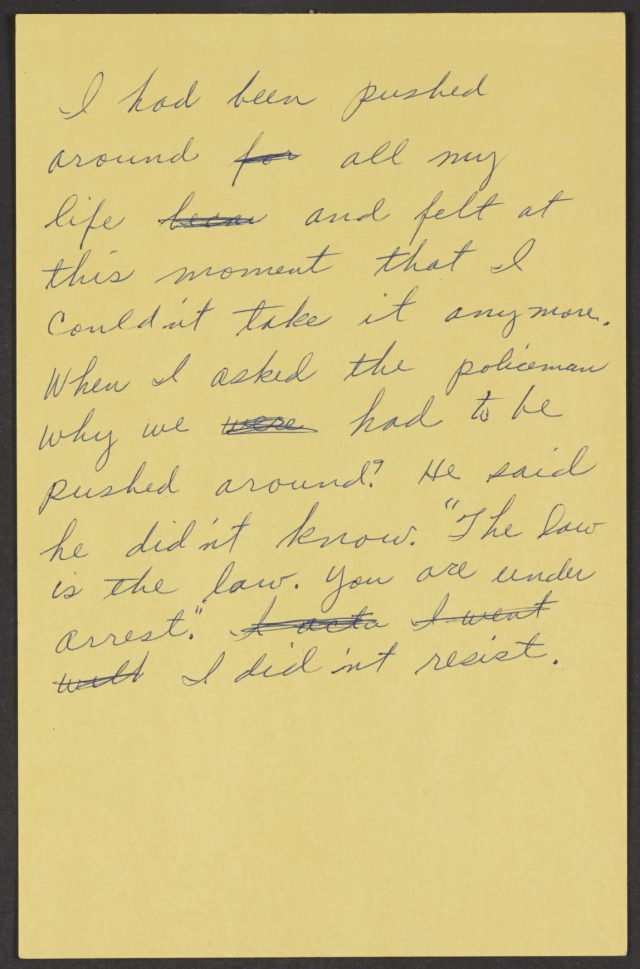 I had been pushed
around for all my
life and felt at
this moment that I
couldn't take it anymore.
When I asked the policeman
why we were had to be
pushed around? He said
he didn't know. "The law
is the law. You are under
arrest." I went
I didn't resist.